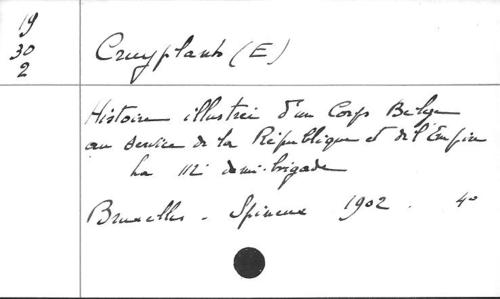 19
30
2
Cruyplants (E)
Histoire illustrée d'un Corps Belge
au service de la République et de l'Empire
La 112e demi-brigade
Bruxelles - Spineux 1902. 4o